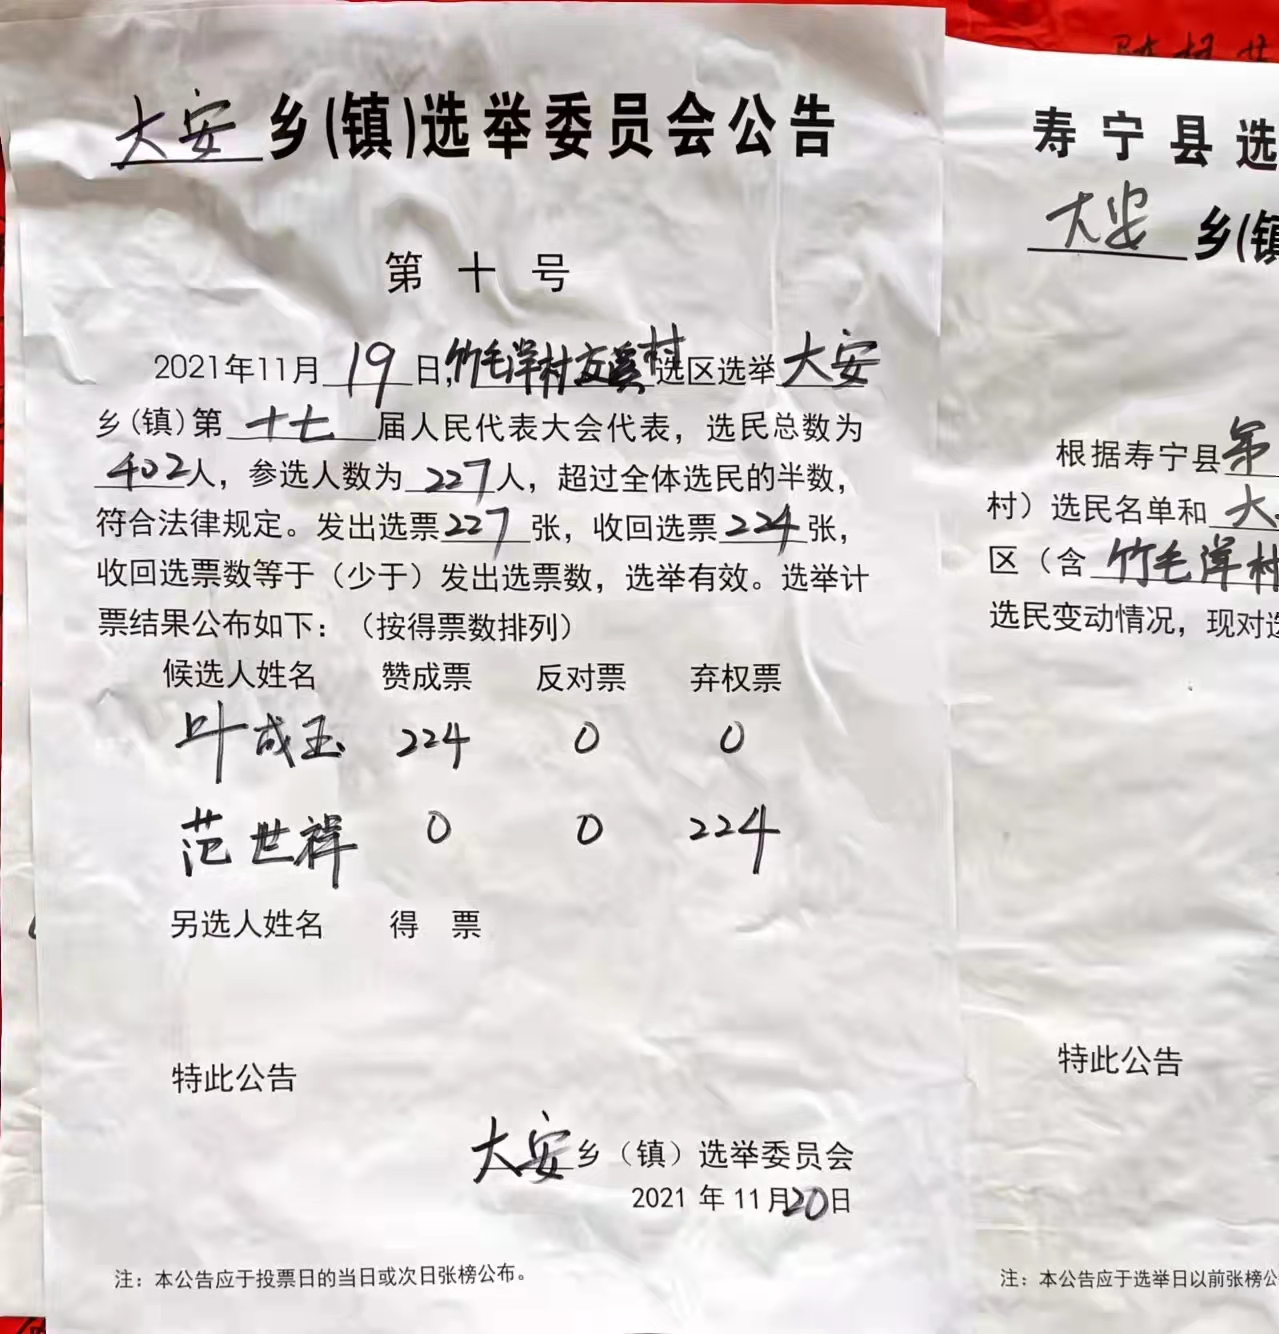 大安乡(镇)选举委员会公告
第十号
2021年11月19日,竹毛洋村交溪村选区选举大安
乡(镇)第十七届人民代表大会代表，选民总数为
402人，参选人数为227人，超过全体选民的半数，
符合法律规定。发出选票227张，收回选票224张，
收回选票数等于（少于）发出选票数，选举有效。选举计
票结果公布如下：（按得票数排列）
候选人姓名 赞成票 反对票 弃权票
叶成玉 224 0 0
范世祥 0 0 224
另选人姓名 得 票
特此公告
大安乡（镇）选举委员会
2021年11月20日
注：本公告应于投票日的当日或次日张榜公布。
寿宁县选
大安乡(镇
根据寿宁县第
村）选民名单和大
区（含竹毛洋村
选民变动情况，现对选
特此公告
注：本公告应于选举日以前张榜公